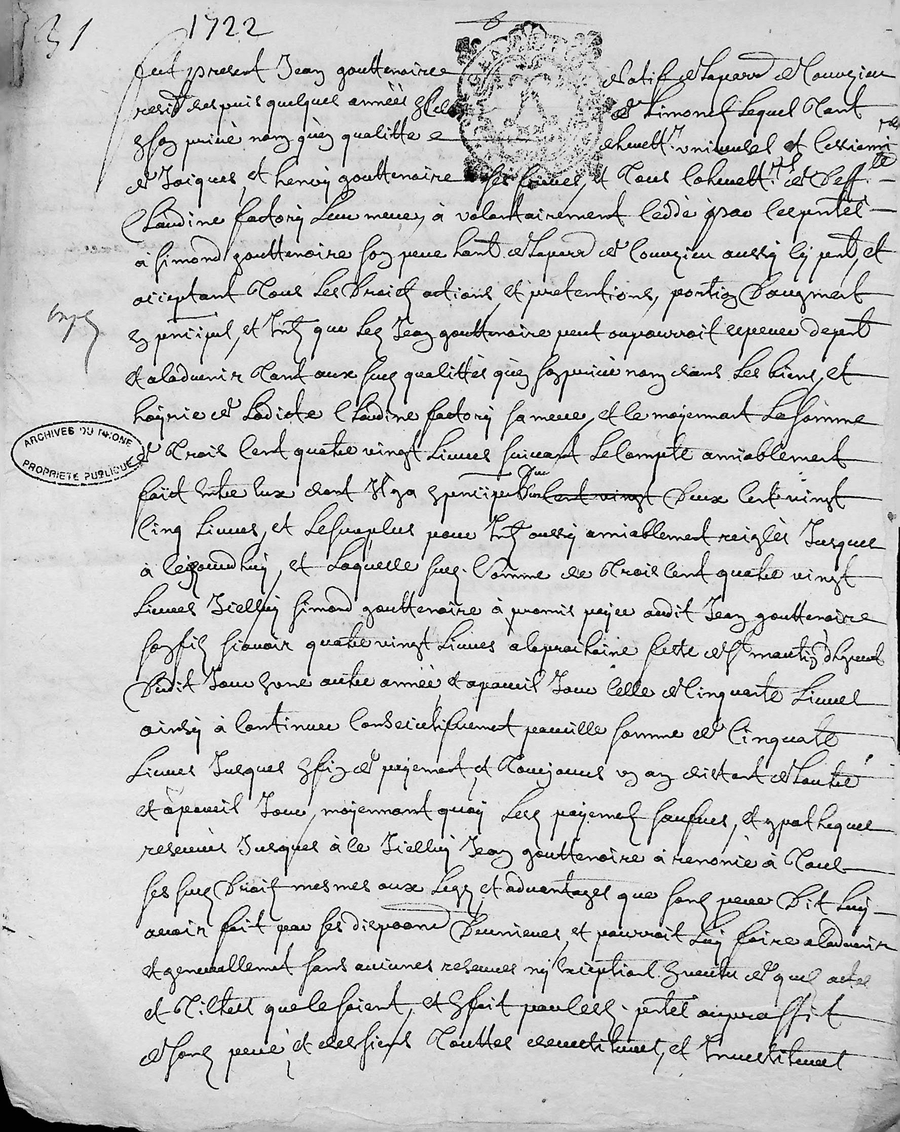 31 1722
fut present Jean gouttenoire natif de la parr. de Courzieu
resid. despuis quelques années de Limonest lequel tant
en son privé nom qu'en qualitté heritt. universel et
de Jacques, et henry gouttenoire ses freres, et tous coheritt. de deff.
Claudine factory leur mere, à volontairement ceddé par les presentes
à Simond gouttenoire son pere habt. de la parr. de Courzieu aussy icy pnt, et
acceptant tous les droits actions, et pretentions, portion d'augment
en principal, et Intz que led. Jean gouttenoire peut ou pourroit esperer de pnt
et aladvenir tant aux sus. qualittés qu'en son privé nom dans les biens, et
hoyrie de Ladicte Claudine factory sa mere, et ce moyennant la somme
de trois cent quatre vingt Livres suivant le compte amiablement
faict entre eux dont Il y a en principal deux cent vingt
Cinq Livres, et le surplus pour Intz aussy amiablement reiglés Jusques
à Ce jourdhuy, et Laquelle sus. Somme de trois cent quatre vingt
Livres Icelluy Simond gouttenoire à promis payer audit Jean gouttenoire
son fils sçavoir quatre vingt Livres a la prochaine feste de St martin d'hyvert
dudit Jour en une autre année, et a pareil Jour Celle de Cinquante Livres
ainsy à Continuer Consecutifvement pareille somme de Cinquante
Livres Jusques en fin de payement, et toujours un an distant de lautre
et à pareil Jour, moyennant quoy Lesd. payements faits, et ypotheques
reservés Jusques à ce Icelluy Jean gouttenoire à renoncé à tous
ses sus. droits mesmes aux Legs, et advantages que sond. pere dit Luy
avoir fait par ses dispoons dernieres, et pourroit Luy faire aladvenir
et generallement sans aucunes reserves ny Exceptions en vertu de quels actes
et tiltres que ce soient, et en fait par cesd. pntes au proffit
de sond. pere et des siens touttes demettitures, et Investitures
exp.
ARCHIVES DU RHONE
PROPRIETE PUBLIQUE